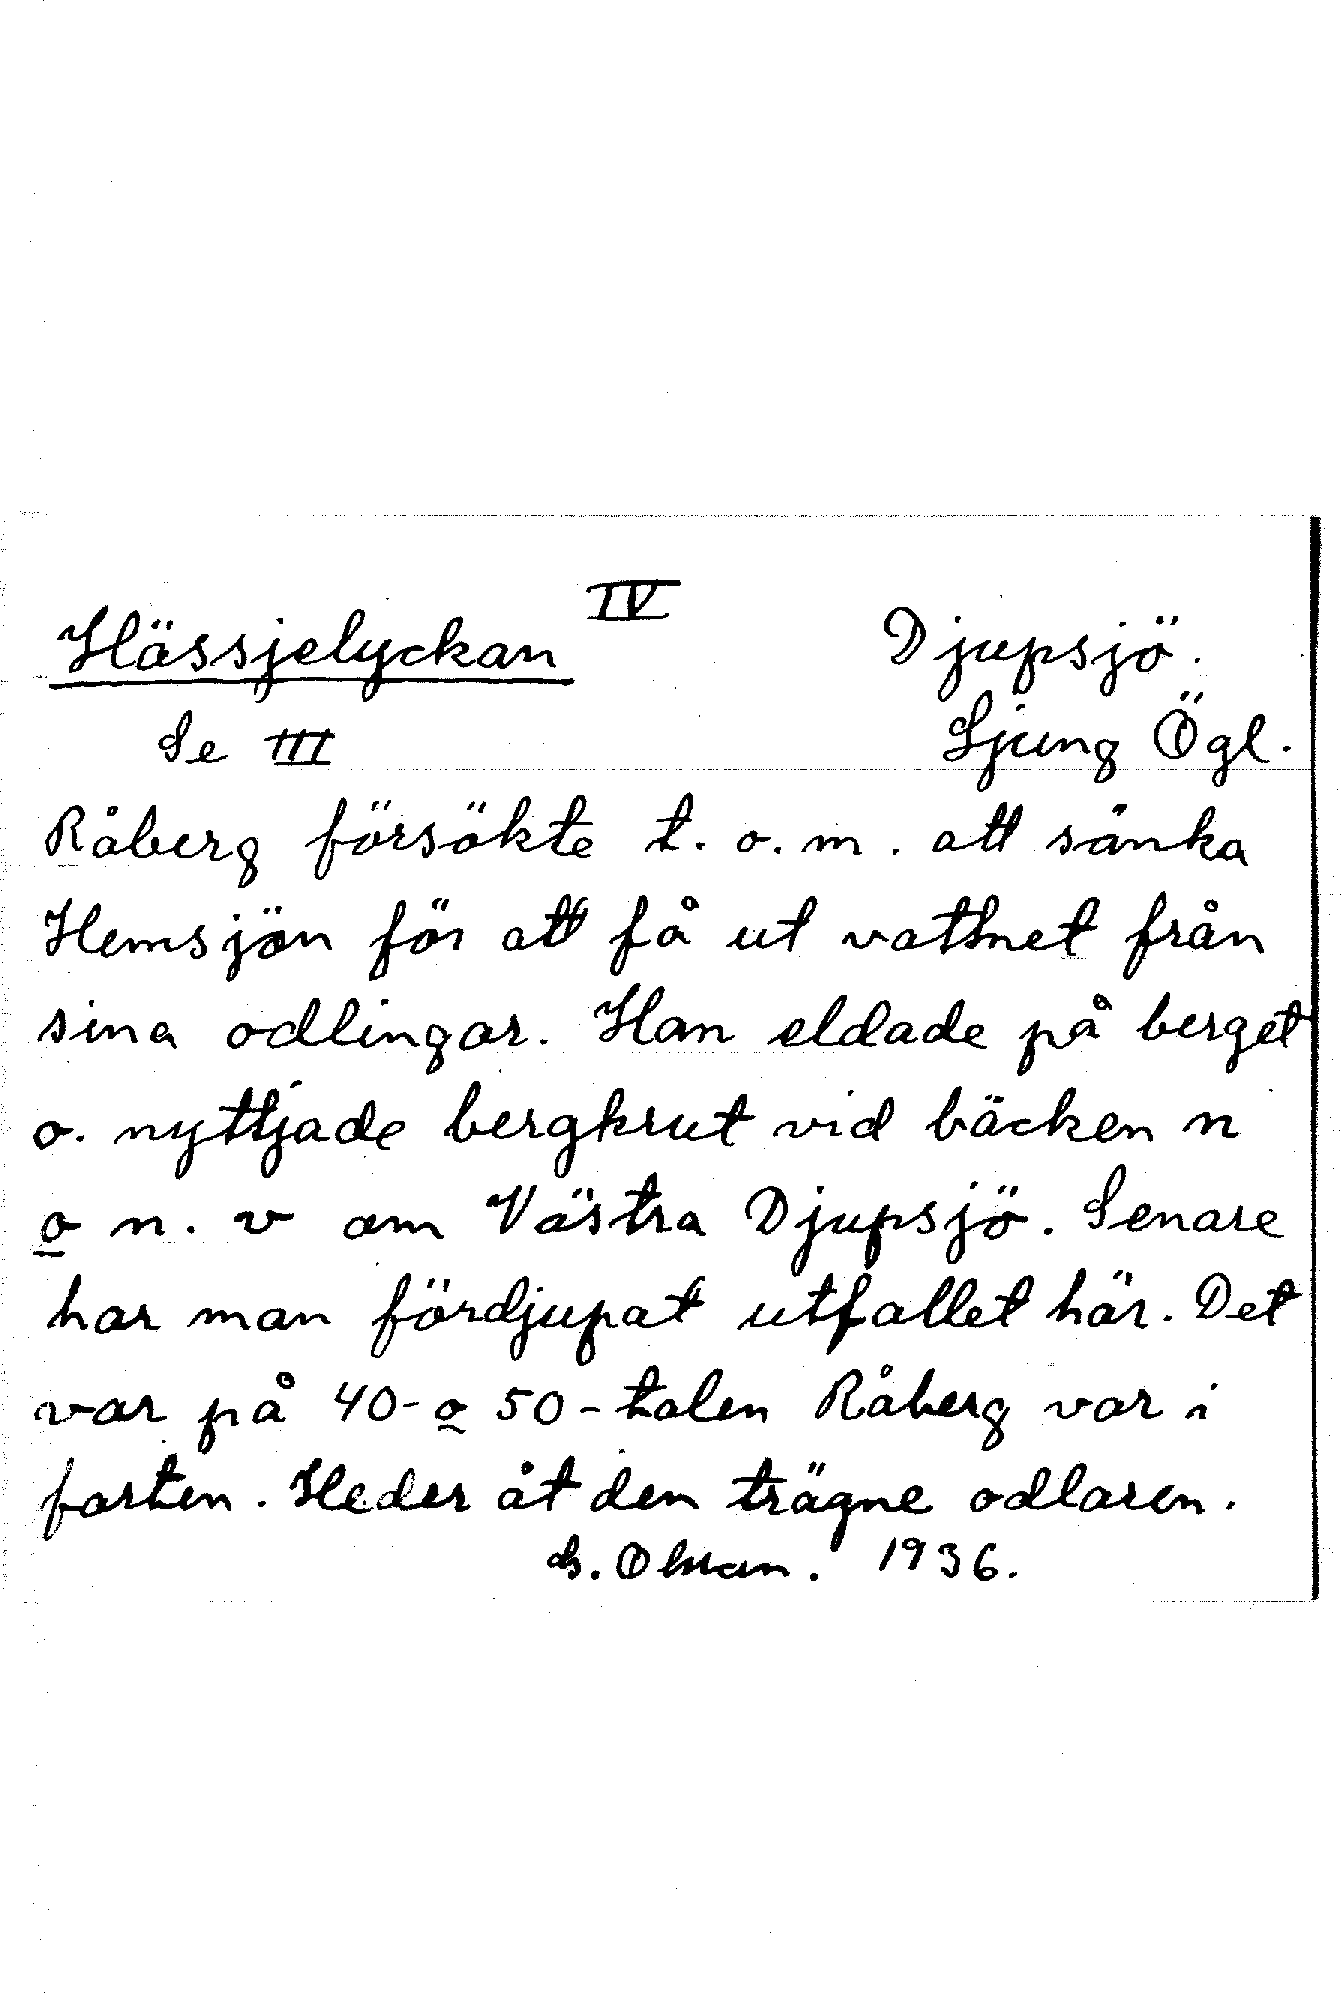 IV
Hässjelyckan Djupsjö.
Se III Ljung Ögl.
Råberg försökte t. o. m. att sänka
Hemsjön för att få ut vattnet från
sina odlingar. Han eldade på berget
o. nyttjade bergkrut vid bäcken n
o n. v om Västra Djupsjö. Senare
har man fördjupat utfallet här. Det
var på 40- o 50-talen Råberg var i
farten. Heder åt den trägne odlaren.
1936.